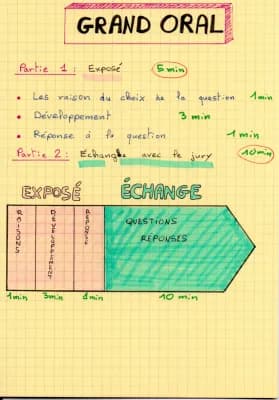 GRAND ORAL
Partie 1 : Exposé 5 min
• Les raison du choix de la question 1 min
• Développement 3 min
• Réponse à la question 1 min
Partie 2 : Echange avec le jury 10 min
EXPOSÉ ÉCHANGE
RAISONS
DEVELOPPEMENT
REPONSE
QUESTIONS
REPONSES
1 min 3 min 1 min 10 min